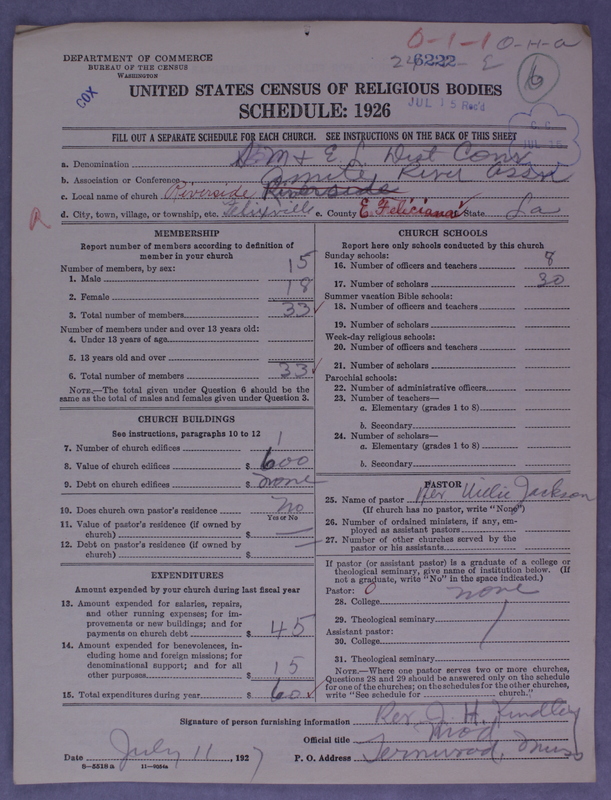 0-1-1 O-H-a
24-6222-E
6
DEPARTMENT OF COMMERCE
BUREAU OF THE CENSUS
WASHINGTON
COX
UNITED STATES CENSUS OF RELIGIOUS BODIES
SCHEDULE: 1926
JUL 15 Rec'd
FILL OUT A SEPARATE SCHEDULE FOR EACH CHURCH. SEE INSTRUCTIONS ON THE BACK OF THIS SHEET
a. Denomination M & E L Dist Conv
b. Association or Conference Amite River Assn
c. Local name of church Riverside Riverside
R d. City, town, village, or township, etc. Felixville e. County E. Feliciana State La
MEMBERSHIP
Report number of members according to definition of
member in your church
Number of members, by sex:
1. Male 15
2. Female 18
3. Total number of members 33
Number of members under and over 13 years old:
4. Under 13 years of age
5. 13 years old and over
6. Total number of members 33
NOTE.—The total given under Question 6 should be the
same as the total of males and females given under Question 3.
CHURCH BUILDINGS
See instructions, paragraphs 10 to 12
7. Number of church edifices 1
8. Value of church edifices $ 600
9. Debt on church edifices $ none
10. Does church own pastor's residence No
Yes or No
11. Value of pastor's residence (if owned by
church) $ —
12. Debt on pastor's residence (if owned by
church) $ —
EXPENDITURES
Amount expended by your church during last fiscal year
13. Amount expended for salaries, repairs,
and other running expenses; for im-
provements or new buildings; and for
payments on church debt $ 45
14. Amount expended for benevolences, in-
cluding home and foreign missions; for
denominational support; and for all
other purposes $ 15
15. Total expenditures during year $ 60
CHURCH SCHOOLS
Report here only schools conducted by this church
Sunday schools:
16. Number of officers and teachers 8
17. Number of scholars 30
Summer vacation Bible schools:
18. Number of officers and teachers
19. Number of scholars
Week-day religious schools:
20. Number of officers and teachers
21. Number of scholars
Parochial schools:
22. Number of administrative officers
23. Number of teachers—
a. Elementary (grades 1 to 8)
b. Secondary
24. Number of scholars—
a. Elementary (grades 1 to 8)
b. Secondary
PASTOR
25. Name of pastor Rev Willie Jackson
(If church has no pastor, write "None")
26. Number of ordained ministers, if any, em-
ployed as assistant pastors
27. Number of other churches served by the
pastor or his assistants
If pastor (or assistant pastor) is a graduate of a college or
theological seminary, give name of institution below. (If
not a graduate, write "No" in the space indicated.)
Pastor: 0 none
28. College
29. Theological seminary
Assistant pastor:
30. College
31. Theological seminary
NOTE.—Where one pastor serves two or more churches,
Questions 28 and 29 should be answered only on the schedule
for one of the churches; on the schedules for the other churches,
write "See schedule for church."
Signature of person furnishing information Rev. J. H. Kindley
Official title Mod
Date July 11, 1927 P. O. Address Miss
8-5518a 11-9354a